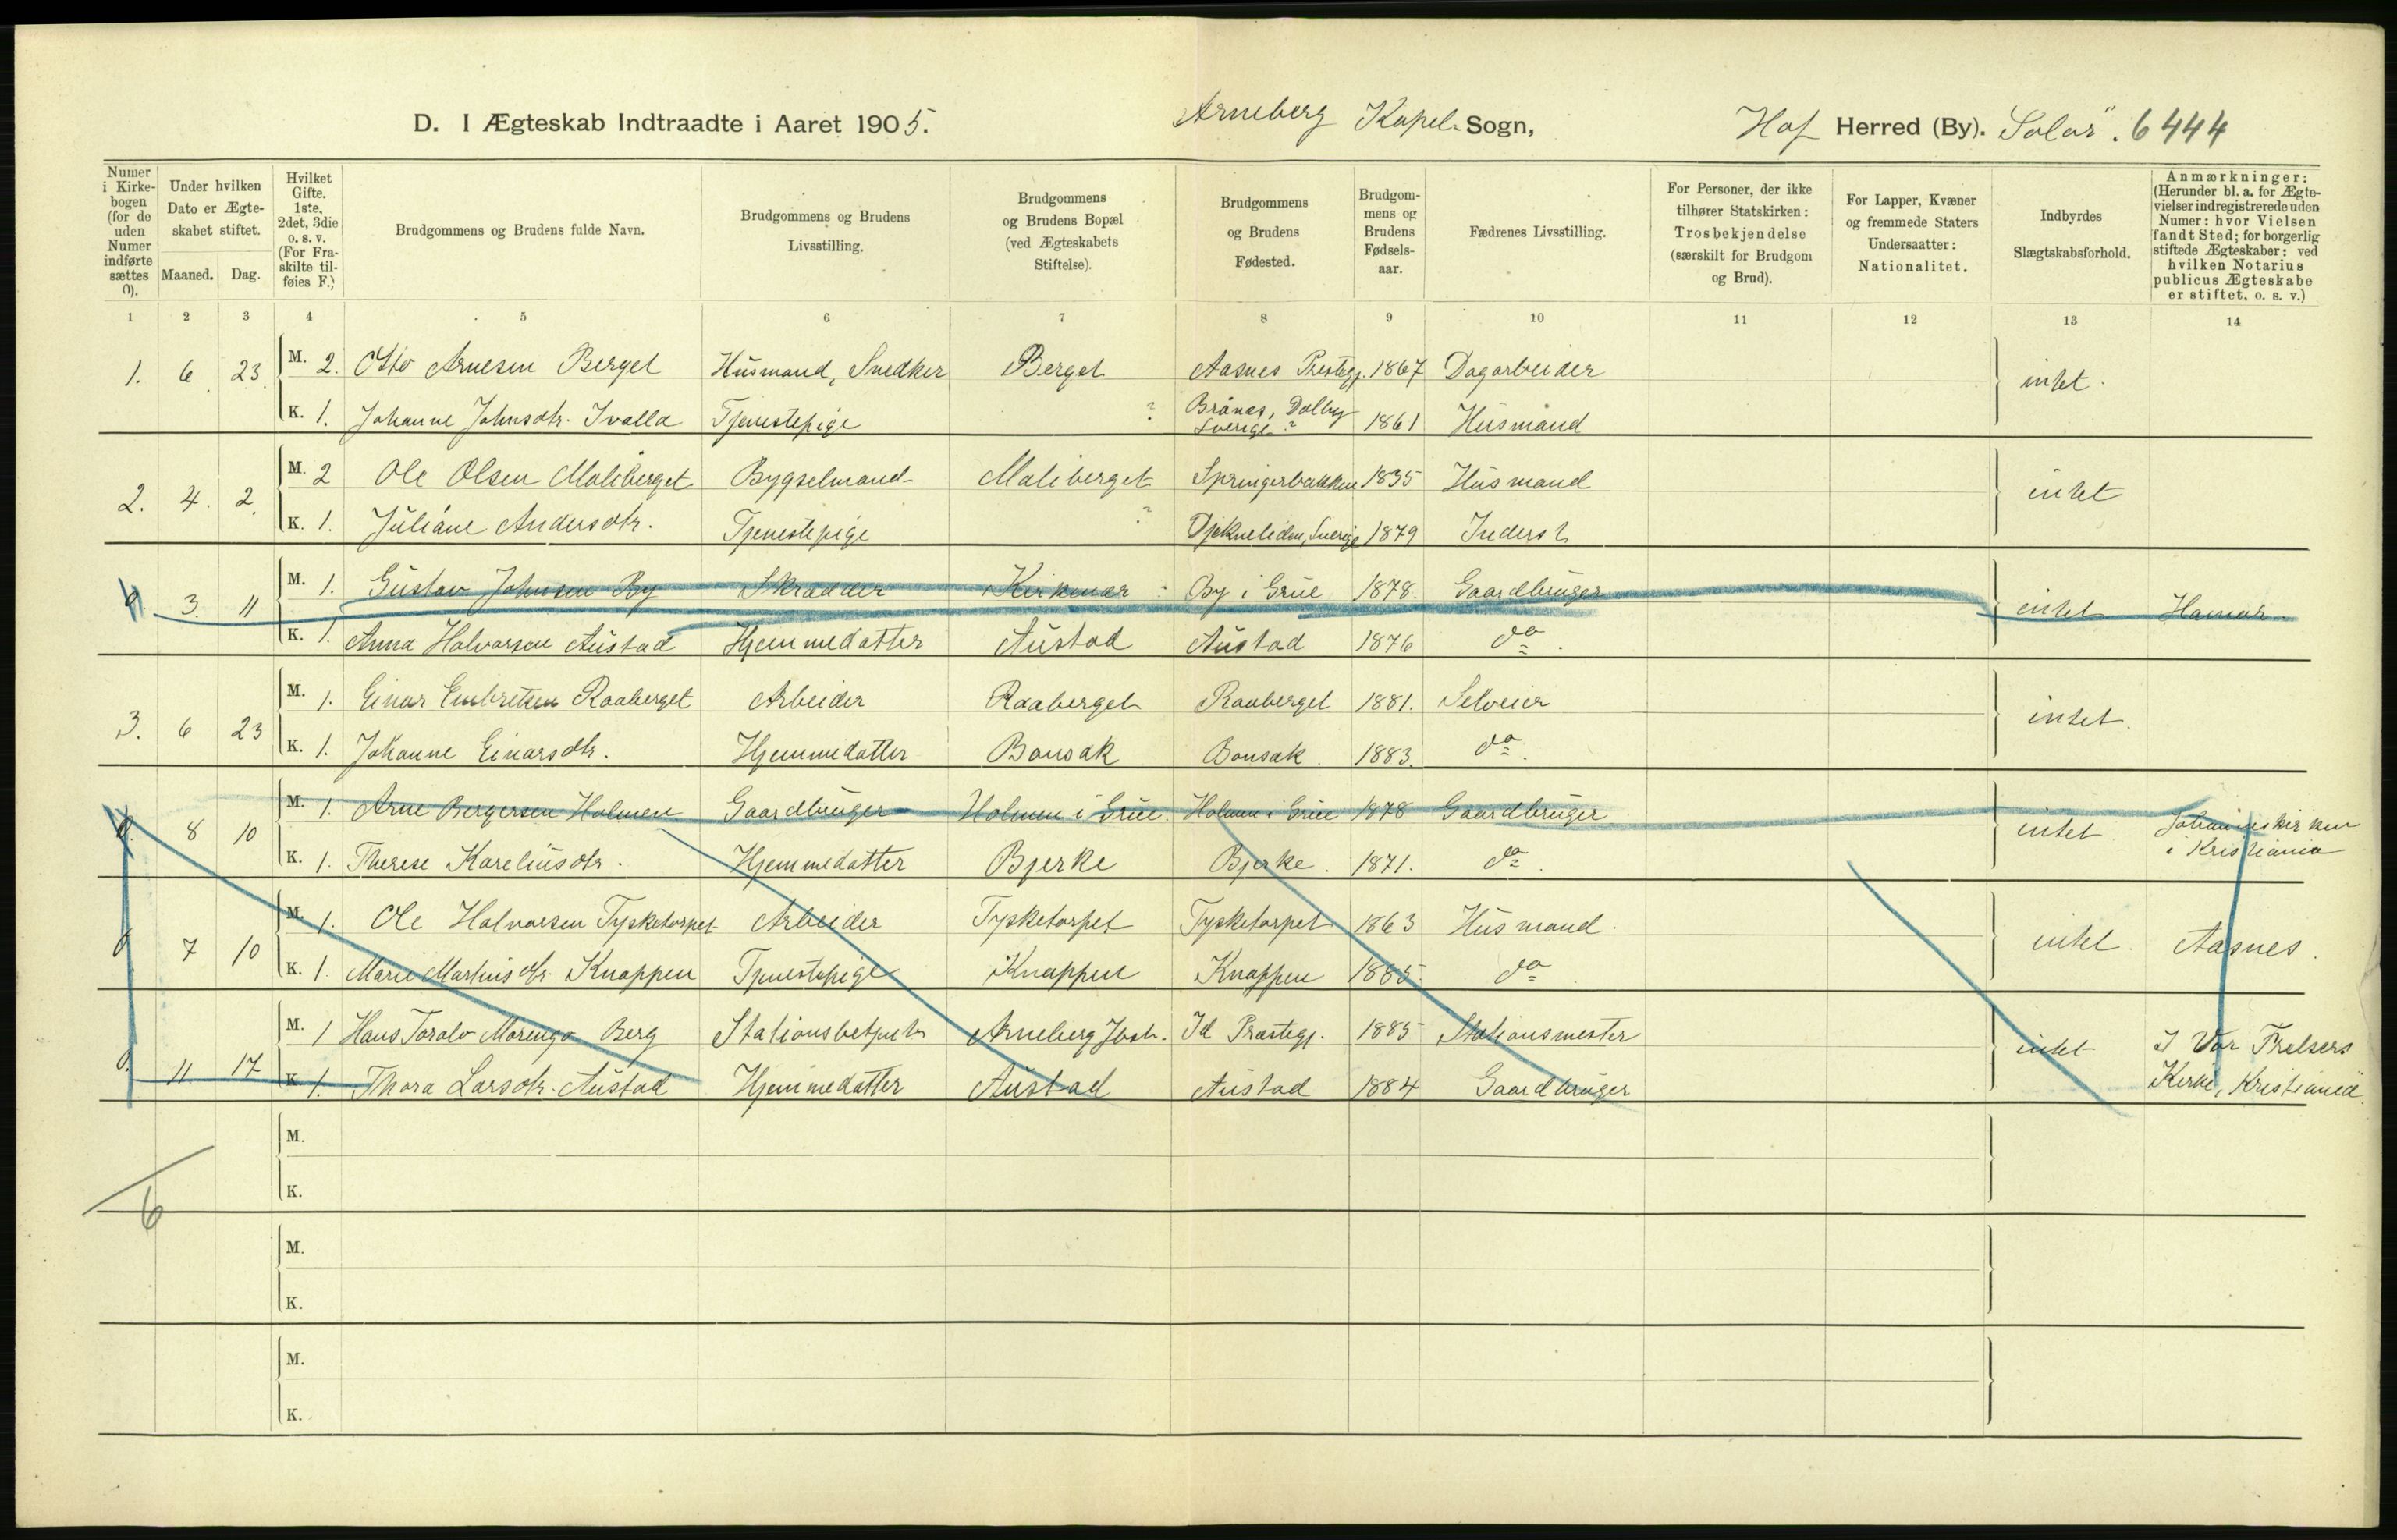 D. I Ægteskab Indtraadte i Aaret 1905. Arneberg Kapel Sogn, Hof Herred (By). Solør. 6444
Numer i Kirkebogen (for de uden Numer indførte sættes 0).
Under hvilken Dato er Ægteskabet stiftet.
Maaned. Dag.
Hvilket Gifte. 1ste, 2det, 3die o. s. v. (For Fraskilte tilføies F.)
Brudgommens og Brudens fulde Navn.
Brudgommens og Brudens Livsstilling.
Brudgommens og Brudens Bopæl (ved Ægteskabets Stiftelse).
Brudgommens og Brudens Fødested.
Brudgommens og Brudens Fødselsaar.
Fædrenes Livsstilling.
For Personer, der ikke tilhører Statskirken: Trosbekjendelse (særskilt for Brudgom og Brud).
For Lapper, Kvæner og fremmede Staters Undersaatter: Nationalitet.
Indbyrdes Slægtskabsforhold.
Anmærkninger: (Herunder bl. a. for Ægtevielser indregistrerede uden Numer: hvor Vielsen fandt Sted; for borgerlig stiftede Ægteskaber: ved hvilken Notarius publicus Ægteskabe er stiftet, o. s. v.)
1 2 3 4 5 6 7 8 9 10 11 12 13 14
1. 6 23 M. 2. Otto Arnesen Berget Husmand, Snedker Berget Aasnes Prestegj. 1867 Dagarbeider intet.
K. 1. Johanne Johnsdtr. Ivalla Tjenestepige ? Brånes, Dalby Sverige ? 1861 Husmand
2. 4. 2. M. 2 Ole Olsen Maliberget Bygselmand Maliberget Springerbakken 1835 Husmand intet
K. 1. Juliane Andersdtr. Tjenestepige ? Djekneliden, Sverige 1879 Inderst
0 3 11 M. 1. Gustav Johnsen By Skrædder Kirkenær By i Grue 1878. Gaardbruger intet Hamar
K. 1. Anna Halvorsen Austad Hjemmedatter Austad Austad 1876 do.
3. 6 23 M. 1. Einar Embretsen Raaberget Arbeider Raaberget Raaberget 1881. Selveier intet.
K. 1. Johanne Einarsdtr. Hjemmedatter Bonsak Bonsak. 1883. do.
0. 8 10 M. 1. Arne Bergersen Holmen Gaardbruger Holmen i Grue. Holmen i Grue 1878 Gaardbruger intet Johanneskirken i Kristiania
K. 1. Therese Kareliusdtr. Hjemmedatter Bjerke Bjerke. 1871. do.
0. 7 10 M. 1. Ole Halvorsen Tysketorpet Arbeider Tysketorpet Tysketorpet 1863 Husmand. intet. Aasnes.
K. 1 Marie Martinisdtr. Knappen Tjenestepige Knappen Knappen 1885. do
0. 11 17 M. 1 Hans Toralv Marengo Berg Stationsbetjent Arneberg Jbst. Id Præstegj. 1885 Stationsmester intet I Vor Frelsers Kirke, Kristiania
K. 1. Thora Larsdtr. Austad Hjemmedatter Austad Austad 1884 Gaardbruger
M.
K.
6
M.
K.
M.
K.